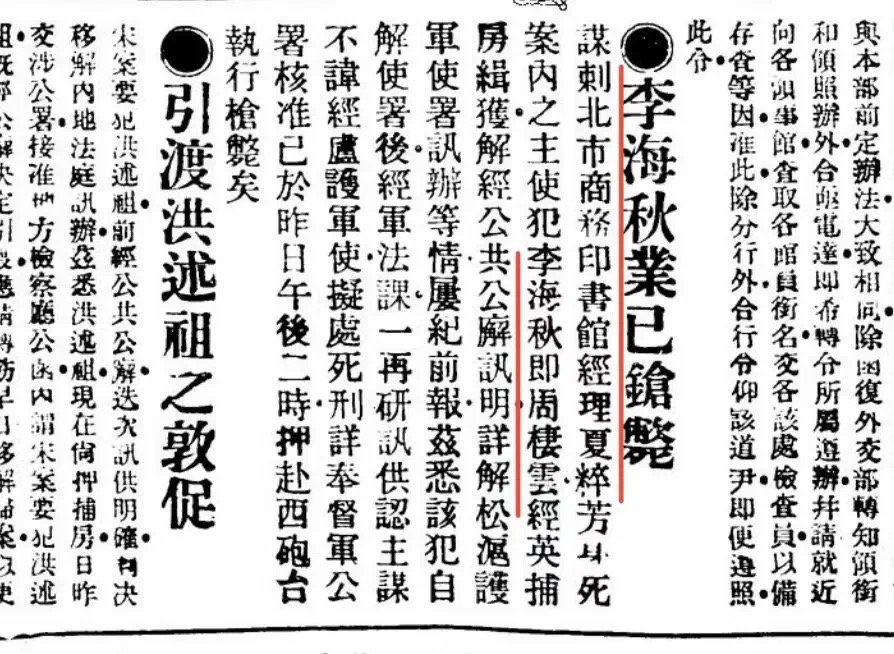 與本部前定辦法大致相同除函復外交部轉知領銜
和領照辦外合亟電達即希轉令所屬遵辦幷請就近
向各領事館查取各館員銜名交各該處檢查員以備
存查等因准此除分行外合行令仰該道尹即便遵照
此令
●李海秋業已鎗斃
謀刺北市商務印書館經理夏粹芳身死
案內之主使犯李海秋即周棲雲經英捕
房緝獲解經公共公廨訊明詳解松滬護
軍使署訊辦等情屢紀前報茲悉該犯自
解使署後經軍法課一再研訊供認主謀
不諱經盧護軍使擬處死刑詳奉督軍公
署核准已於昨日午後二時押赴西砲台
執行槍斃矣
●引渡洪述祖之敦促
宋案要犯洪述祖前經公共公廨迭次訊供明確判决
移解內地法庭訊辦茲悉洪述祖現在尙押捕房日昨
交涉公署接准地方檢察廳公函內謂宋案要犯洪述